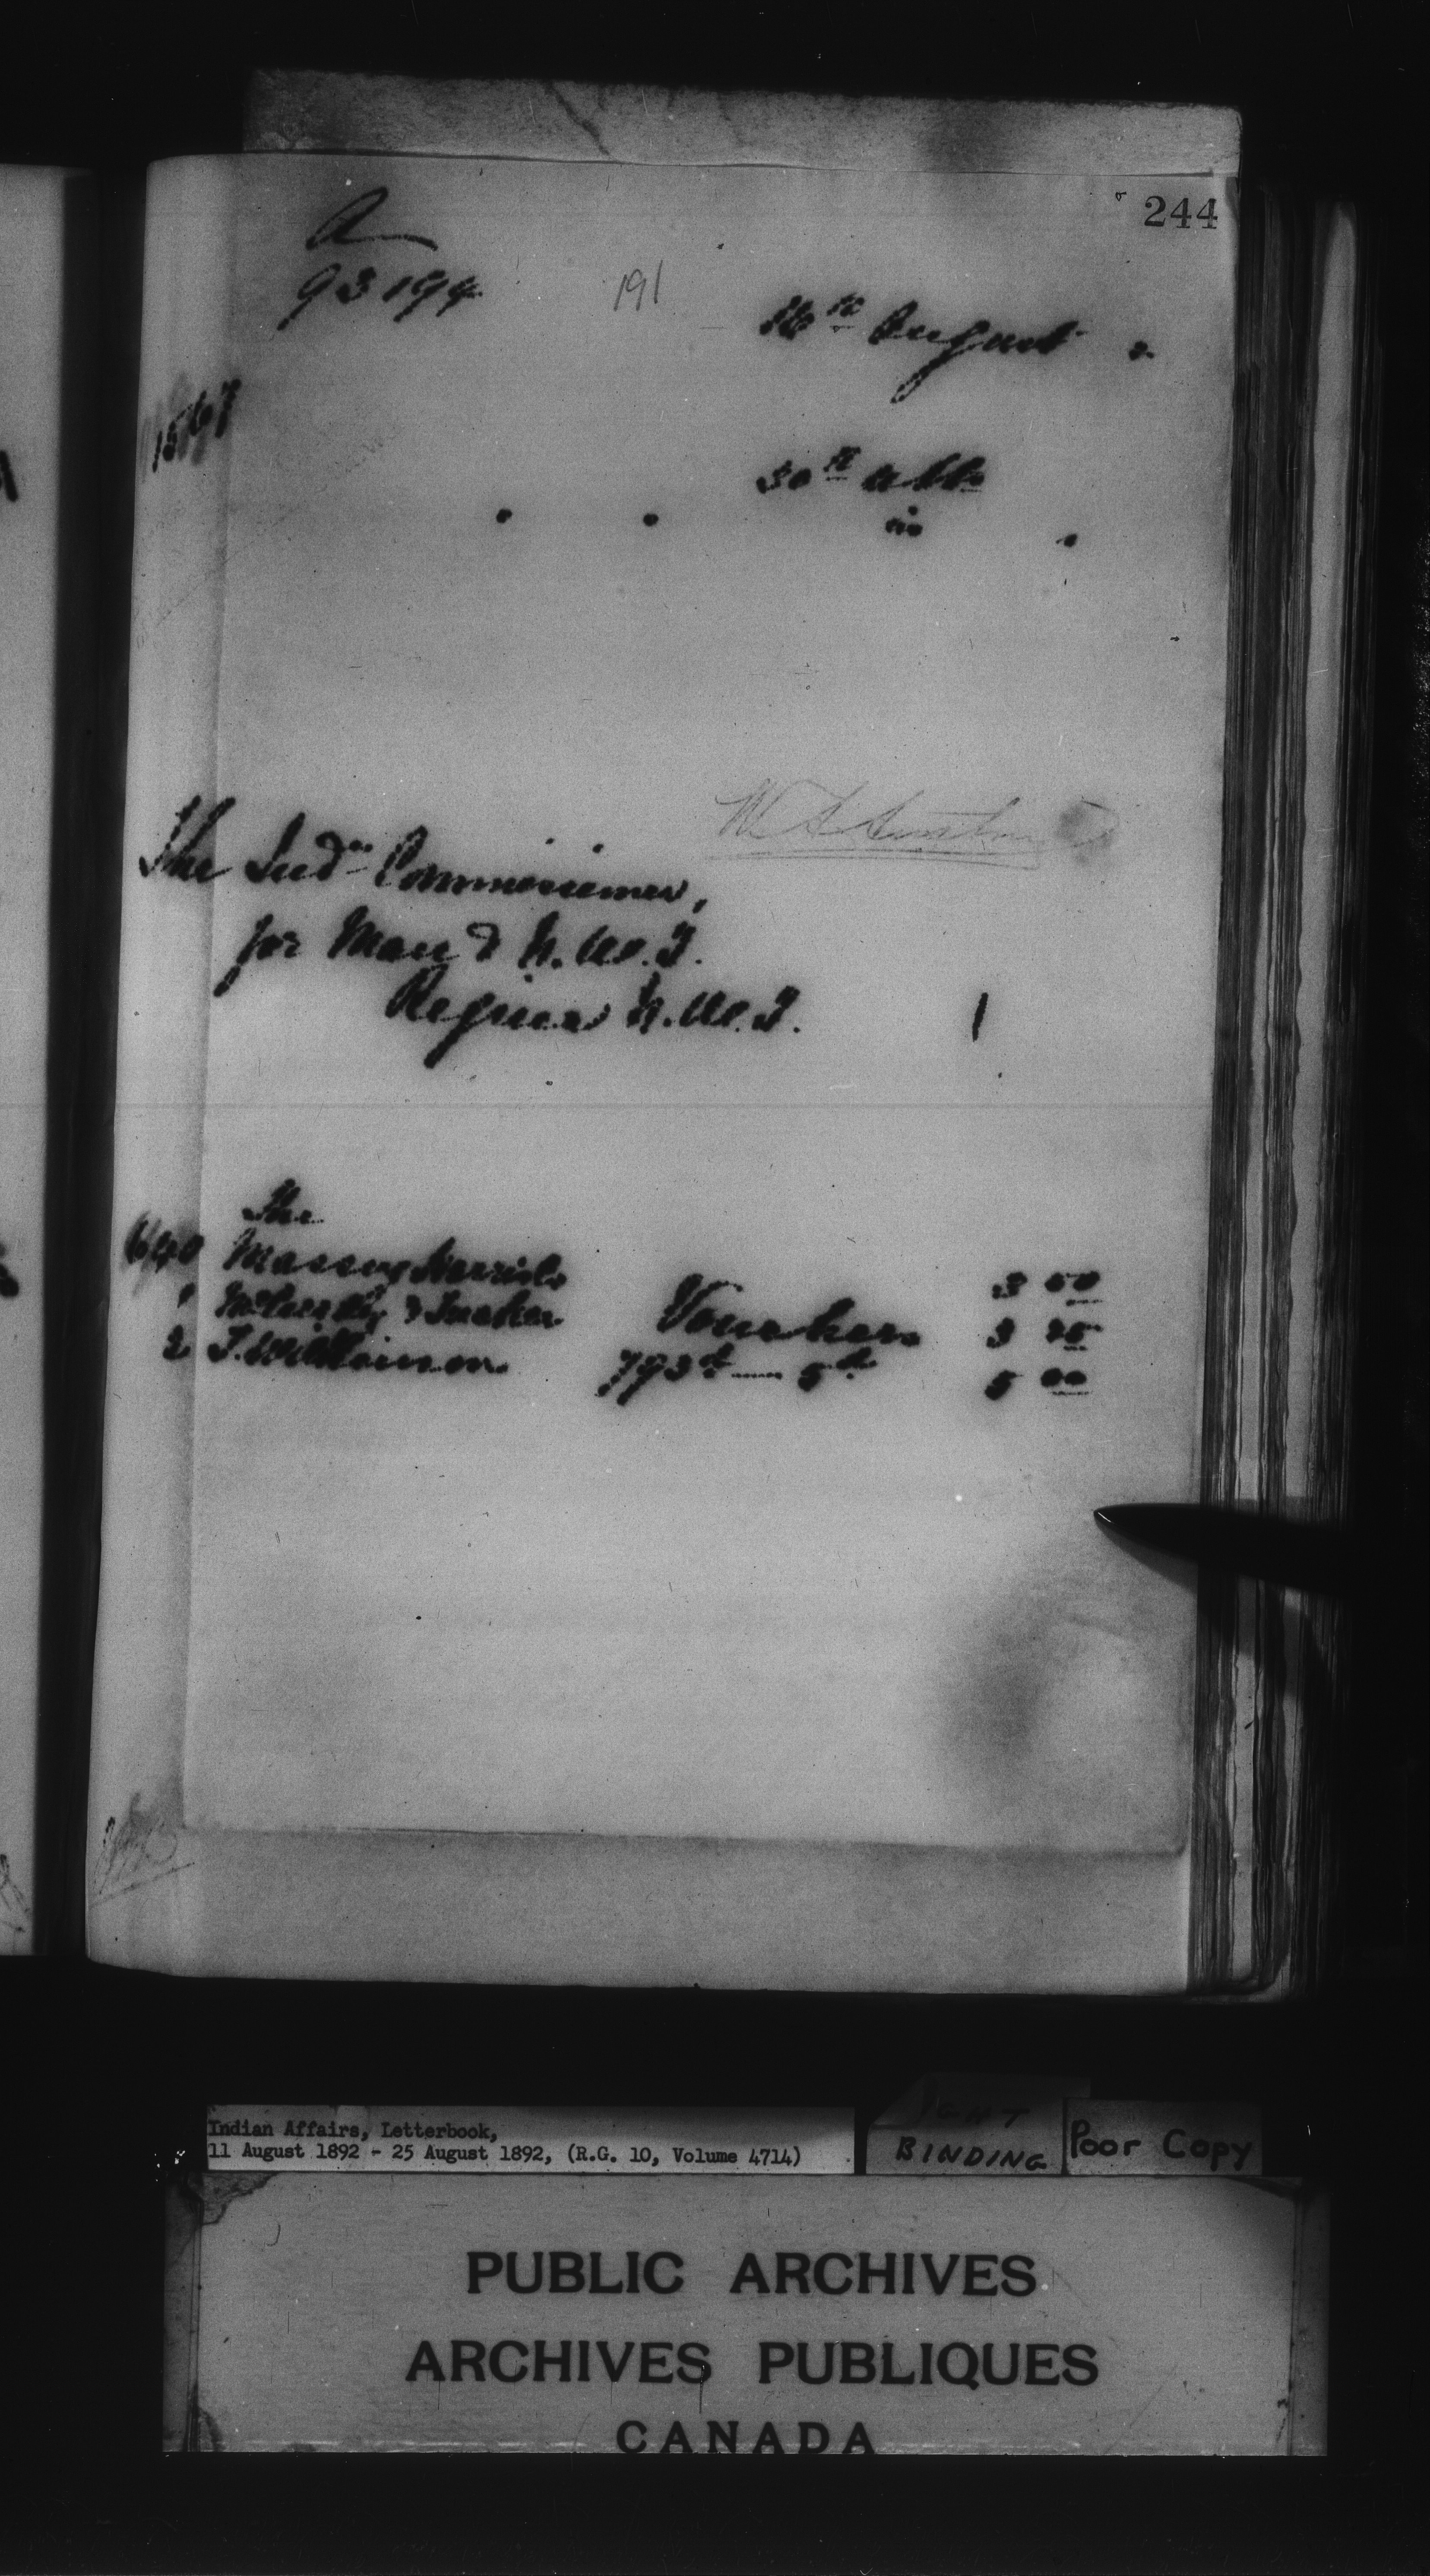 244
A
93194
191
16th August 2
1567
30th ulto
in
The Indn Commissioner,
for Man & N.W.T.
Regina N.W.T.
The
640 Massey Harris Co 3 50
Vouchers 3 25
2 793 5 5 00
Indian Affairs, Letterbook,
11 August 1892 - 25 August 1892, (R.G. 10, Volume 4714)
BINDING
Poor Copy
PUBLIC ARCHIVES
ARCHIVES PUBLIQUES
CANADA